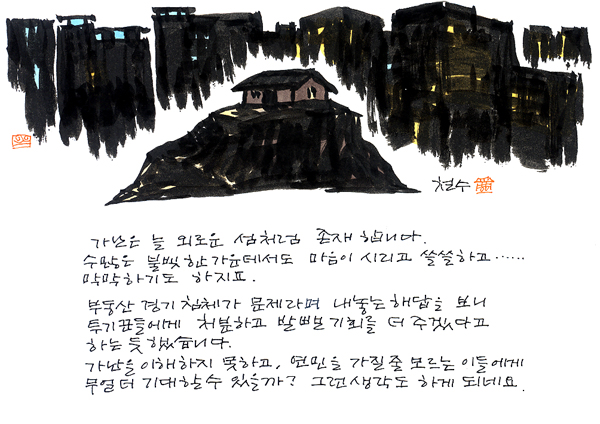 철수
가난은 늘 외로운 섬처럼 존재합니다.
수많은 불빛 한가운데서도 마음이 시리고 쓸쓸하고……
막막하기도 하지요.
부동산 경기 침체가 문제라며 내놓는 해답을 보니
투기꾼들에게 처분하고 발뺄 기회를 더 주겠다고
하는 듯 했습니다.
가난을 이해하지 못하고, 연민을 가질 줄 모르는 이들에게
무얼 더 기대할 수 있을까? 그런 생각도 하게 되네요.